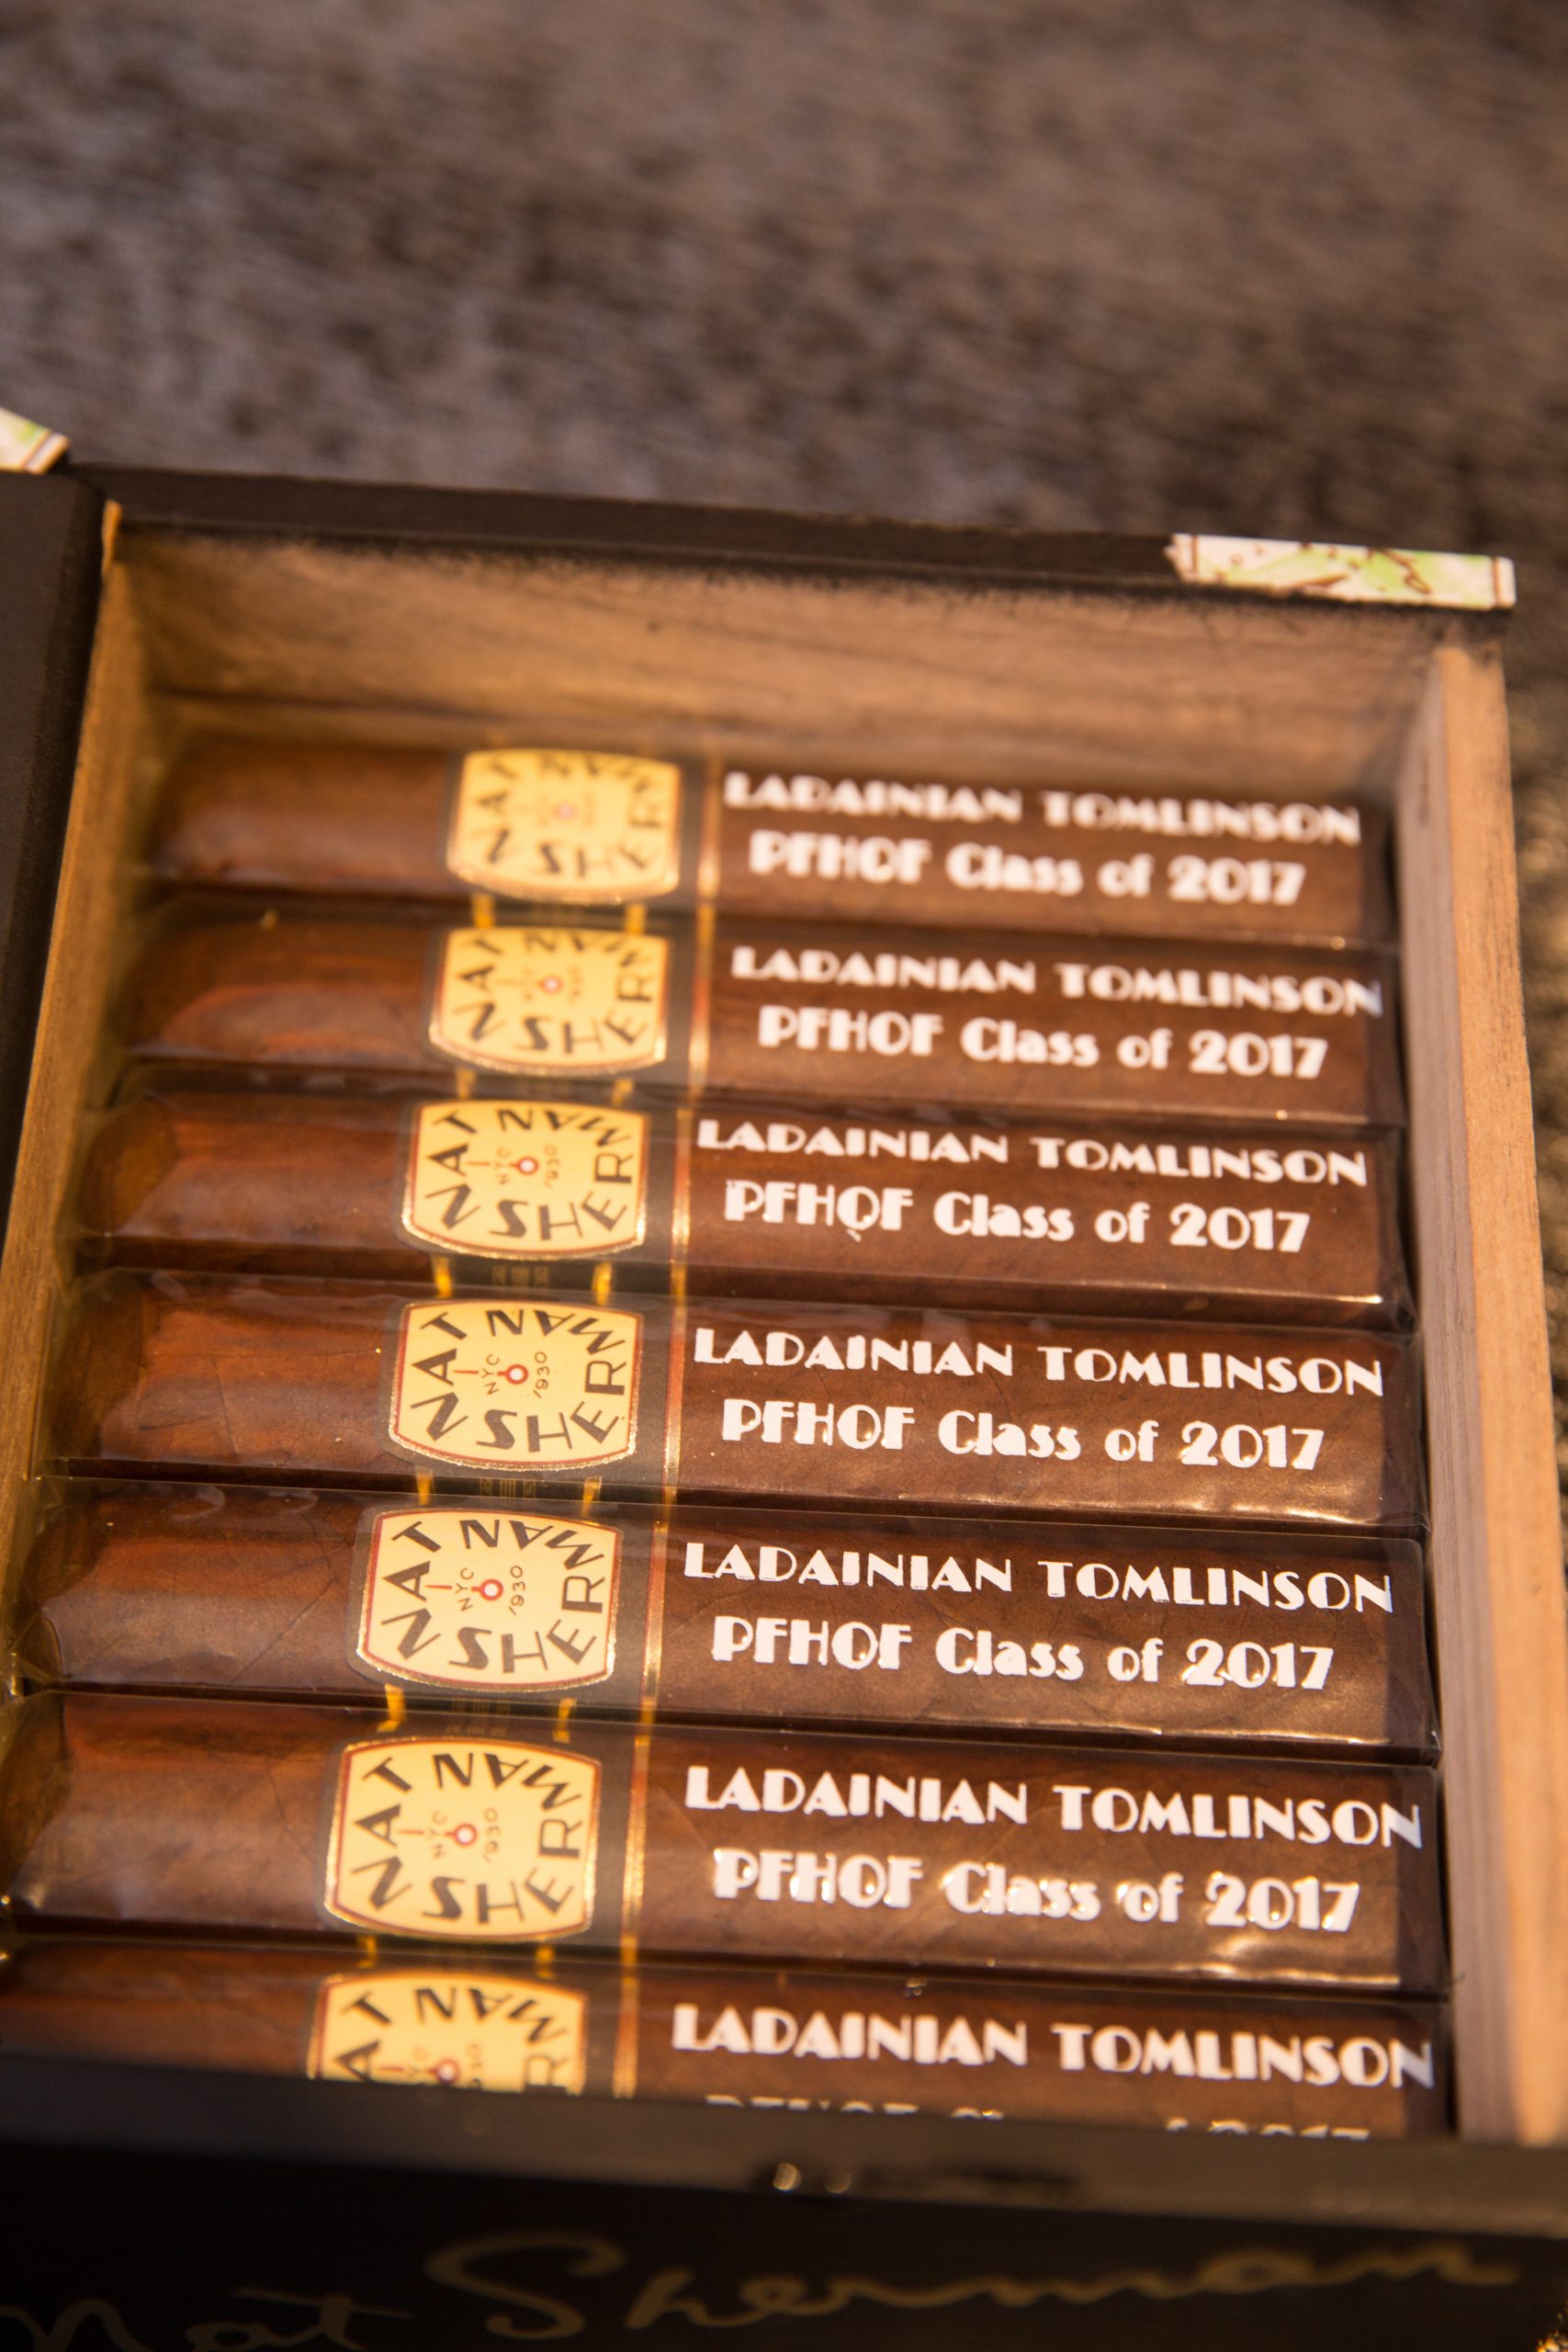 NAT SHERMAN
NYC 1930
LADAINIAN TOMLINSON
PFHOF Class of 2017
NAT SHERMAN
NYC 1930
LADAINIAN TOMLINSON
PFHOF Class of 2017
NAT SHERMAN
NYC 1930
LADAINIAN TOMLINSON
PFHOF Class of 2017
NAT SHERMAN
NYC 1930
LADAINIAN TOMLINSON
PFHOF Class of 2017
NAT SHERMAN
NYC 1930
LADAINIAN TOMLINSON
PFHOF Class of 2017
NAT SHERMAN
NYC 1930
LADAINIAN TOMLINSON
PFHOF Class of 2017
NAT
LADAINIAN TOMLINSON
Nat Sherman